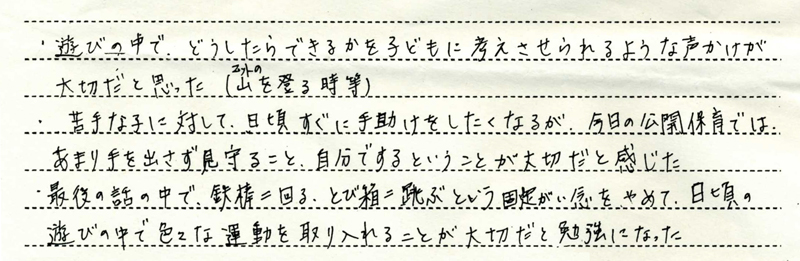 ・遊びの中で、どうしたらできるかを子どもに考えさせられるような声かけが
大切だと思った（マットの山を登る時等）
・苦手な子に対して、日頃すぐに手助けをしたくなるが、今日の公開保育では、
あまり手を出さず見守ること、自分でするということが大切だと感じた
・最後の話の中で、鉄棒＝回る、とび箱＝跳ぶという固定がい念をやめて、日頃の
遊びの中で色々な運動を取り入れることが大切だと勉強になった